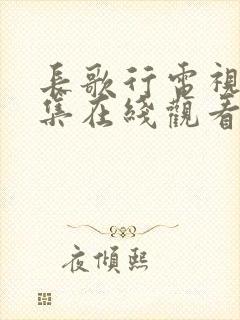 長歌行電視
集在綫觀看
夜傾熙